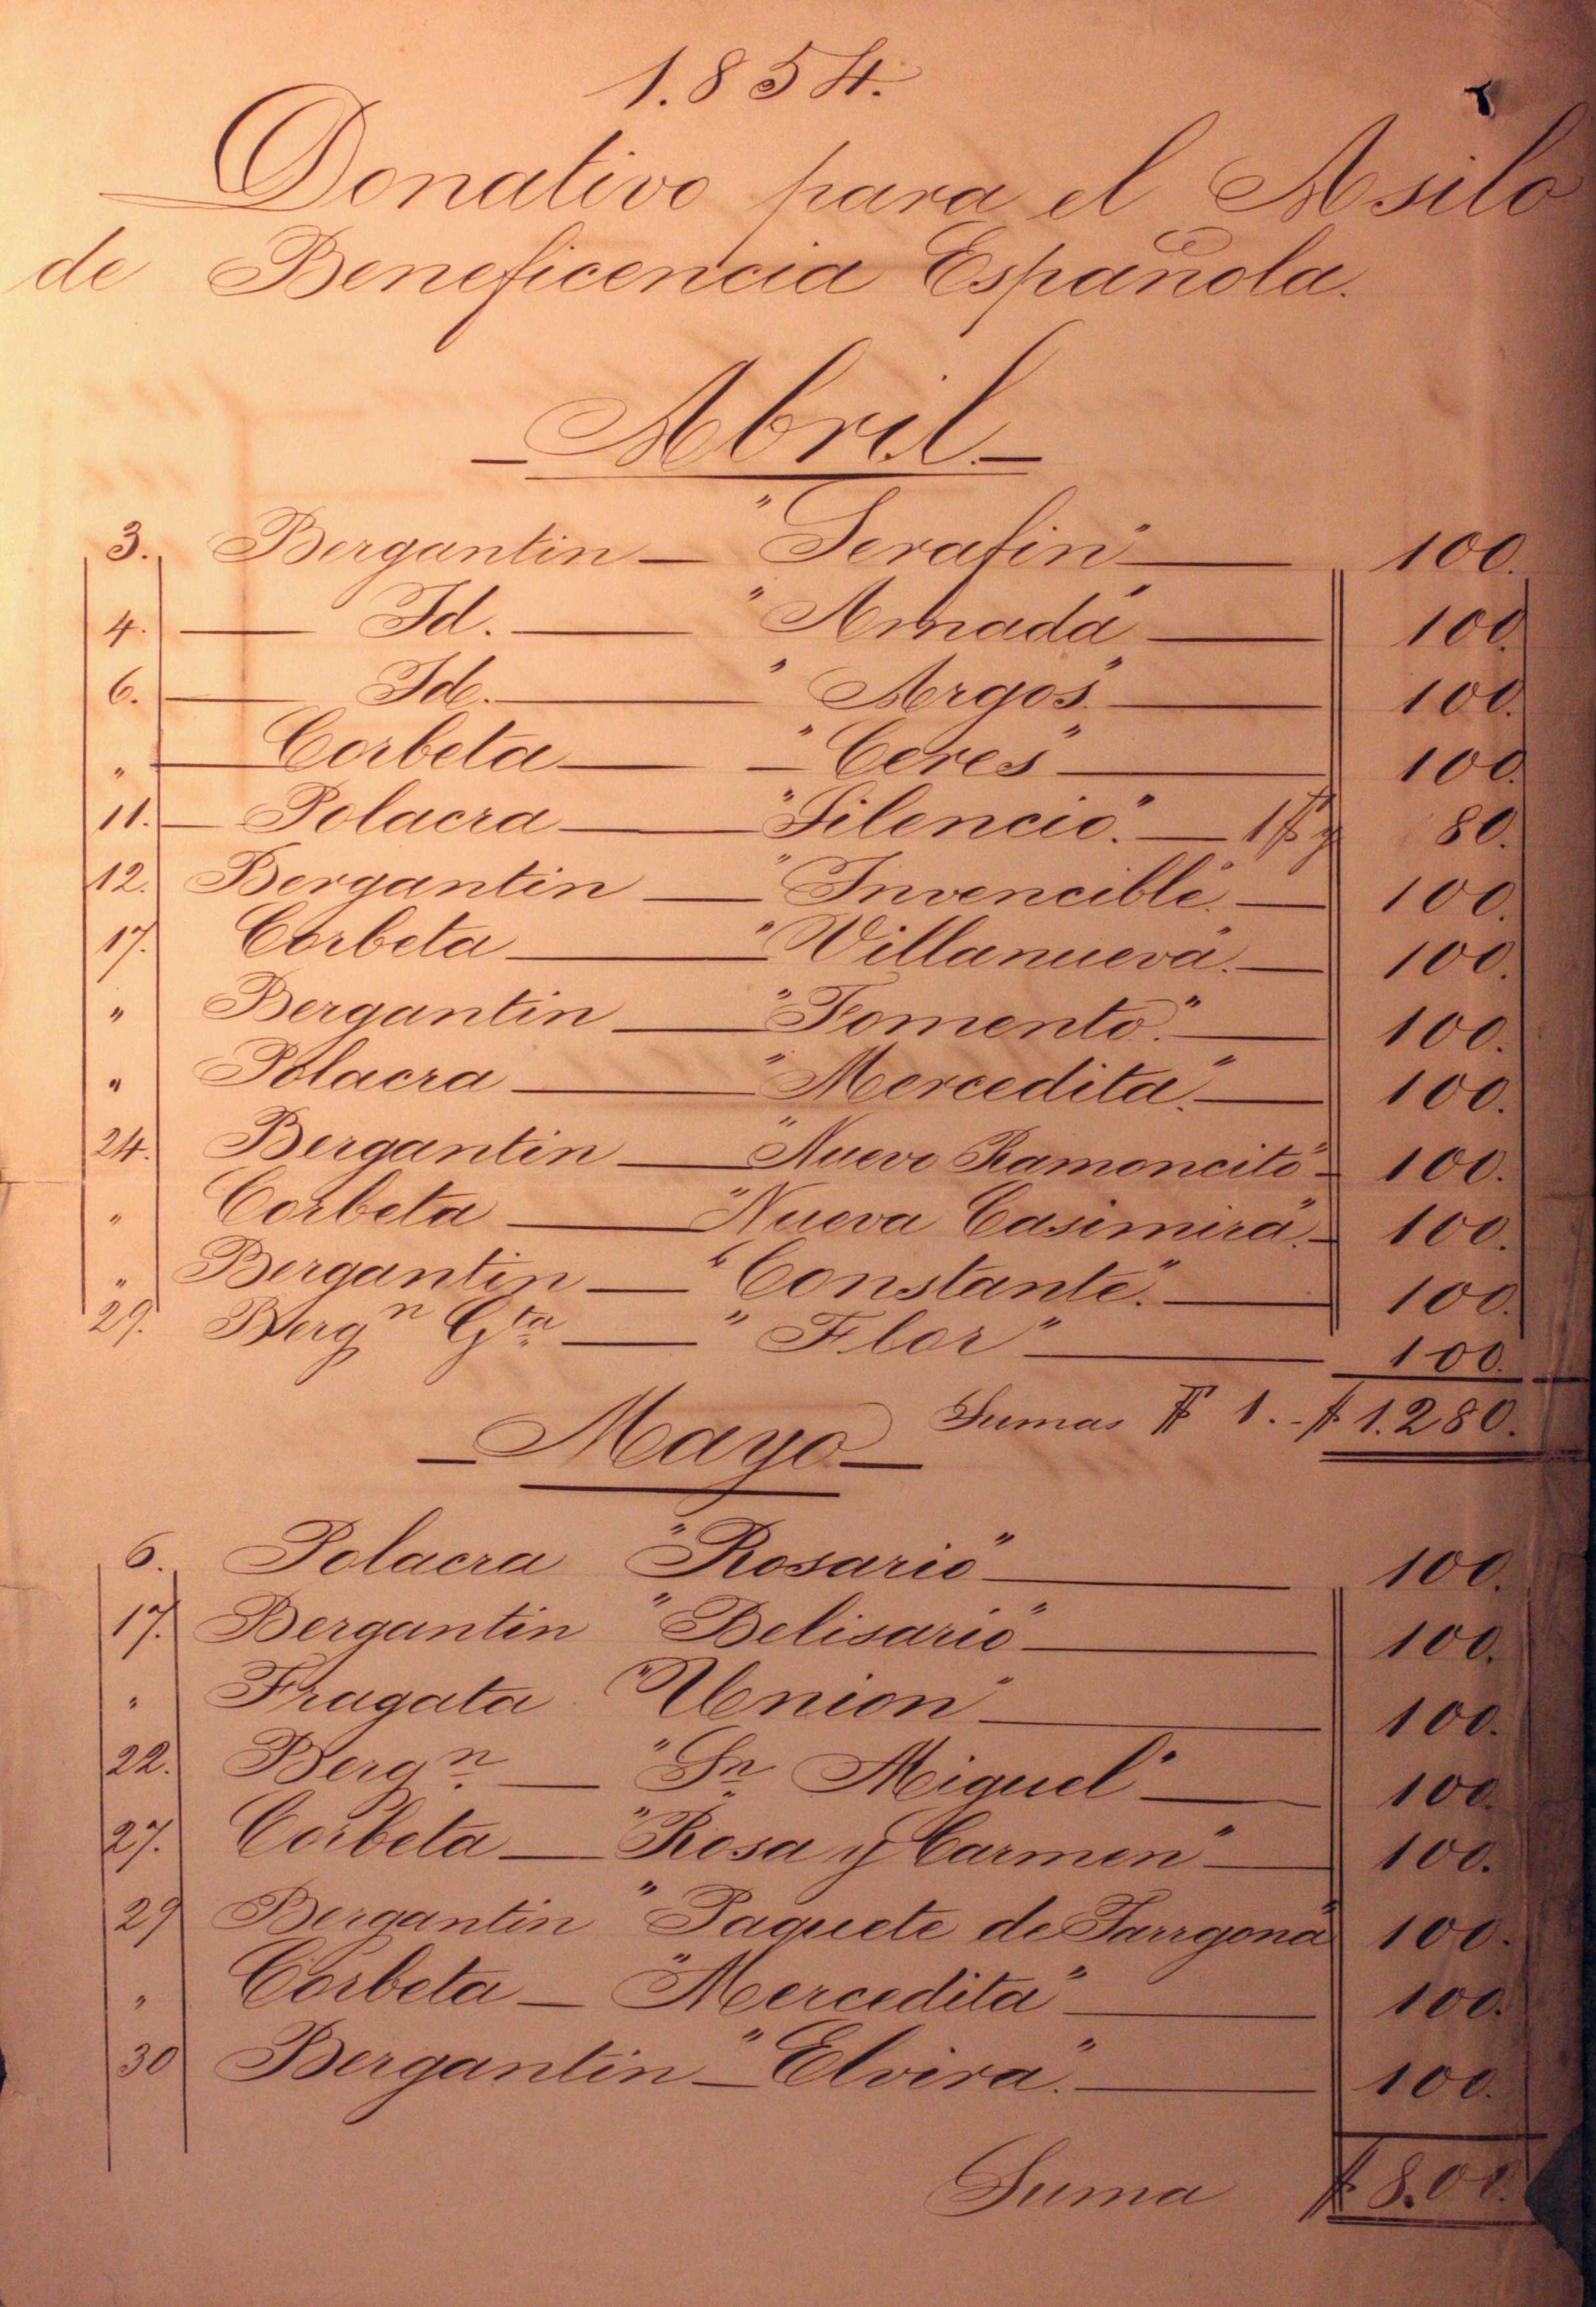 1.854.
Donativo para el Asilo
de Beneficencia Española.
— Abril. —
3. Bergantin — "Serafin" — 100.
4. — Id. — "Amada" — 100.
6. — Id. — "Argos." — 100.
" — Corbeta — — "Ceres" — 100.
11. — Polacra — "Silencio". — 1 $ y 80.
12. Bergantin — "Invencible". — 100.
17. Corbeta — "Villanueva". — 100.
" Bergantin — "Fomento." — 100.
" Polacra — "Mercedita." — 100.
24. Bergantin — "Nuevo Ramoncito" — 100.
" Corbeta — "Nueva Casimira". — 100.
" Bergantin — "Constante." — 100.
29. Bergn Gta — "Flor" — 100.
Sumas $ 1. - $ 1.280.
— Mayo —
6. Polacra "Rosario" — 100.
17. Bergantin "Belisario" — 100.
" Fragata "Union" — 100.
22. Bergn. — "Sn Miguel" — 100.
27. Corbeta — "Rosa y Carmen" — 100.
29 Bergantin "Paquete de Tarrgona" 100.
" Corbeta — "Mercedita" — 100.
30 Bergantin — "Elvira." — 100.
Suma $ 8.00.